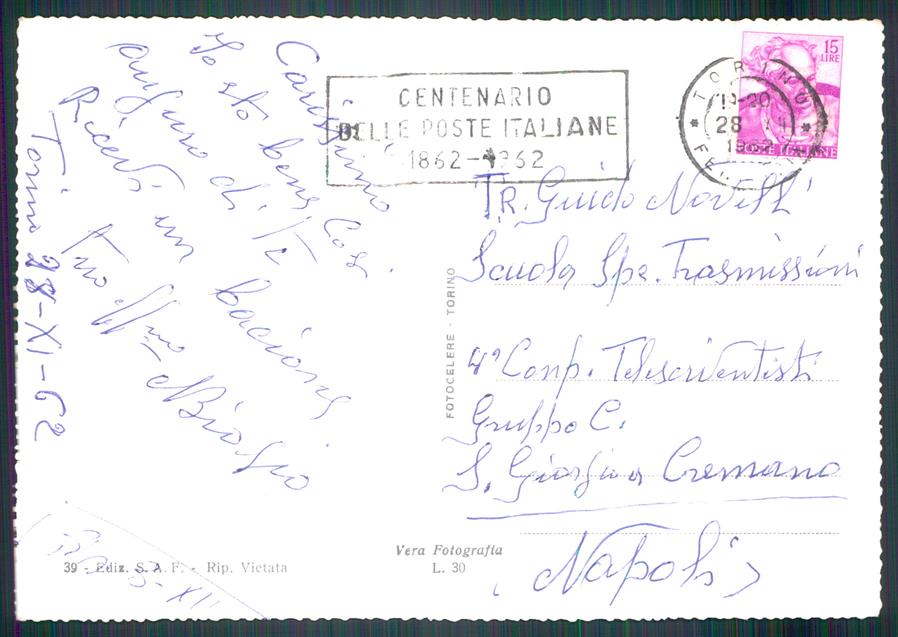 Carissimo
Io sto bene Così
auguro di Te
Ricevi un bacione
Tuo Aff.mo Biagio
Torino 28-XI-62
CENTENARIO
DELLE POSTE ITALIANE
1862-1962
TORINO
19-20
28
1962
15
LIRE
POSTE ITALIANE
TR. Guido Novelli
Scuola Spe. Trasmissioni
4ª Comp. Telescriventisti
Gruppo C.
S. Giorgio a Cremano
(Napoli)
FOTOCELERE - TORINO
Vera Fotografia
L. 30
39 - Ediz. S. A. F. - Rip. Vietata